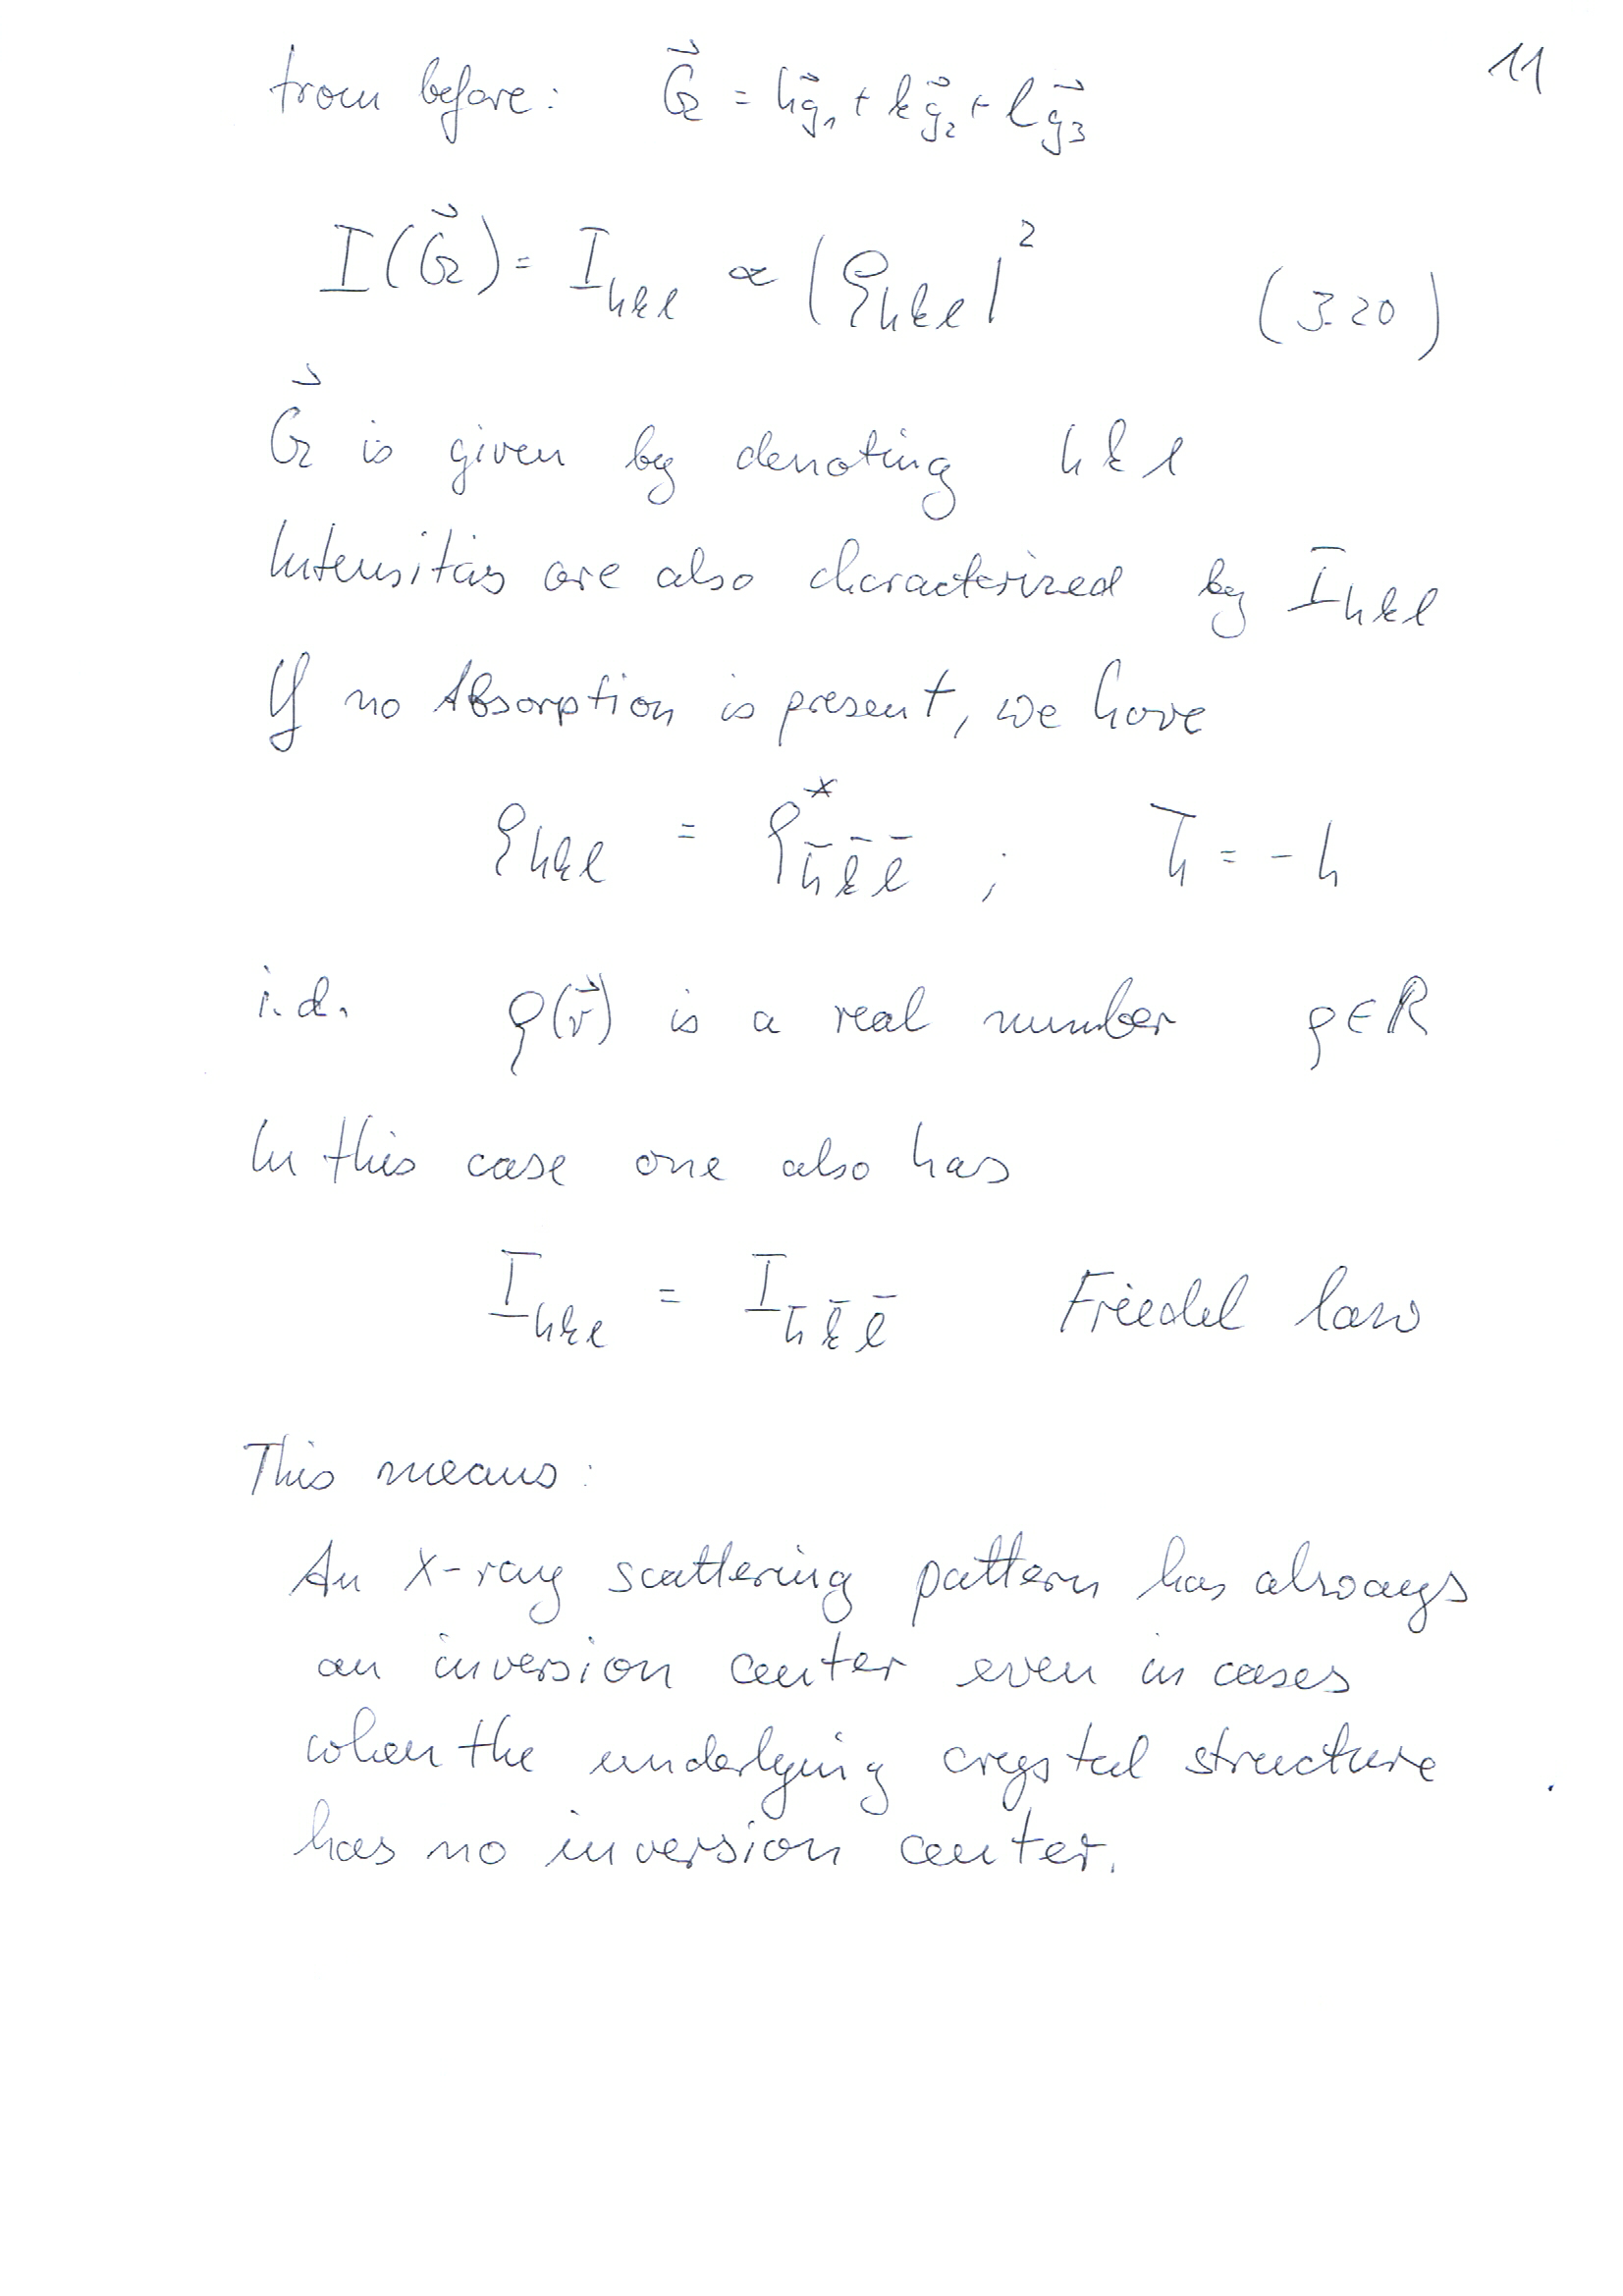 11
from before: G⃗ = hg⃗₁ + kg⃗₂ + lg⃗₃
I(G⃗) = I_hkl ∝ |ρ_hkl|² (3.20)
G⃗ is given by denoting h k l
Intensitäs are also characterized by I_hkl
If no Absorption is present, we have
ρ_hkl = ρ*_h̄k̄l̄ ; h̄ = -h
i.d. ρ(r⃗) is a real number ρ∈R
In this case one also has
I_hkl = I_h̄k̄l̄ Friedel law
This means:
An X-ray scattering pattern has always
an inversion center even in cases
when the underlying crystal structure
has no inversion center.